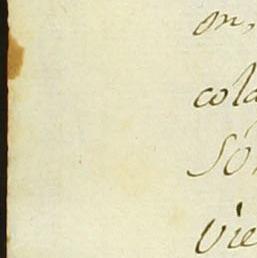 on,
cola
So
vie